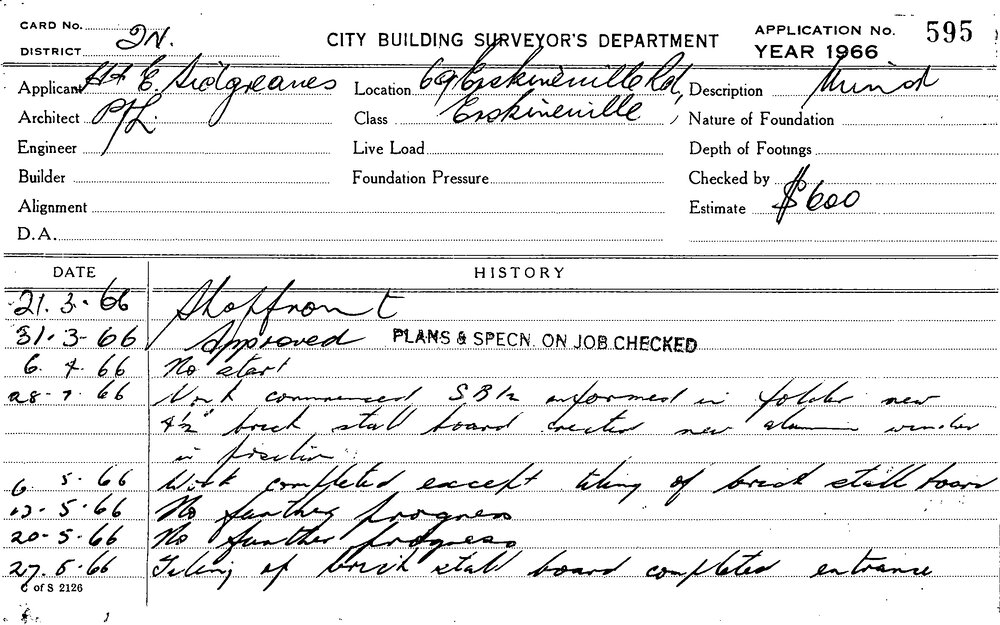 CARD No. 2N. CITY BUILDING SURVEYOR'S DEPARTMENT APPLICATION No. 595
DISTRICT YEAR 1966
Applicant H F E. Sidgreaves Location 69 Erskineville Rd, Description Minor
Architect P/L. Class Erskineville Nature of Foundation
Engineer Live Load Depth of Footings
Builder Foundation Pressure Checked by
Alignment Estimate $600
D.A.
DATE HISTORY
21. 3. 66 Shopfront
31. 3. 66 Approved PLANS & SPECN. ON JOB CHECKED
6. 4. 66 No start
66 Work commenced informed in folder new
4½" brick stall board erected new window
in position
6. 5. 66 Work completed except tiling of brick stall board
13. 5. 66 No further progress
20. 5. 66 No further progress
27. 5. 66 Tiling of brick stall board completed entrance
C of S 2126